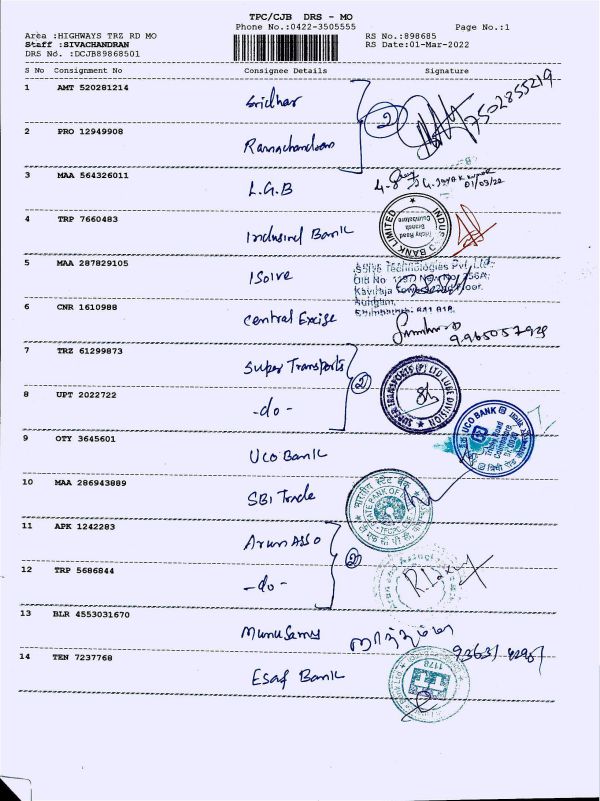 TPC/CJB DRS - MO
Phone No.:0422-3505555
Page No.:1
Area :HIGHWAYS TRZ RD MO
RS No.:898685
Staff :SIVACHANDRAN
RS Date:01-Mar-2022
DRS No. :DCJB89868501
S No Consignment No Consignee Details Signature
1 AMT 520281214 Sridhar
7502855219
2 PRO 12949908 Ramachandran
2
3 MAA 564326011 L.G.B
01/03/22
4 TRP 7660483 Indusind Bank
INDUSIND BANK LIMITED
Trichy Road
Branch
Coimbatore
5 MAA 287829105 ISolve
iSolve Technologies Pvt. Ltd.
6 CNR 1610988 Central Excise
9965057929
7 TRZ 61299873 Super Transports
SUPER TRANSPORTS (P) LTD LUBE DIVISION
8 UPT 2022722 -do-
2
9 OTY 3645601 UCO Bank
UCO BANK
Trichy Road
Coimbatore
10 MAA 286943889 SBI Trade
भारतीय स्टेट बैंक
STATE BANK OF
11 APK 1242283 Arun Asso
2
12 TRP 5686844 -do-
13 BLR 4553031670 Munusamy
14 TEN 7237768 Esaf Bank
1178